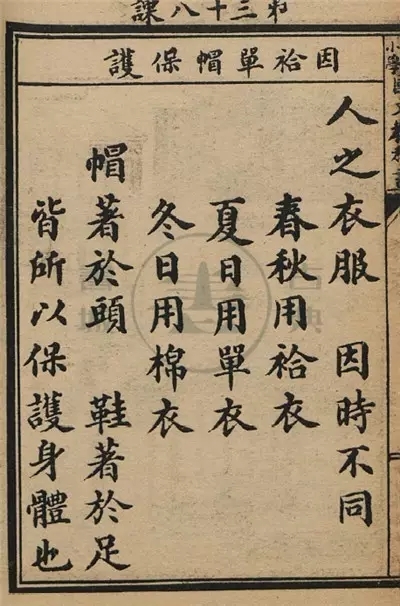 第三十八課
因袷單帽保護
人之衣服 因時不同
春秋用袷衣
夏日用單衣
冬日用棉衣
帽著於頭 鞋著於足
皆所以保護身體也